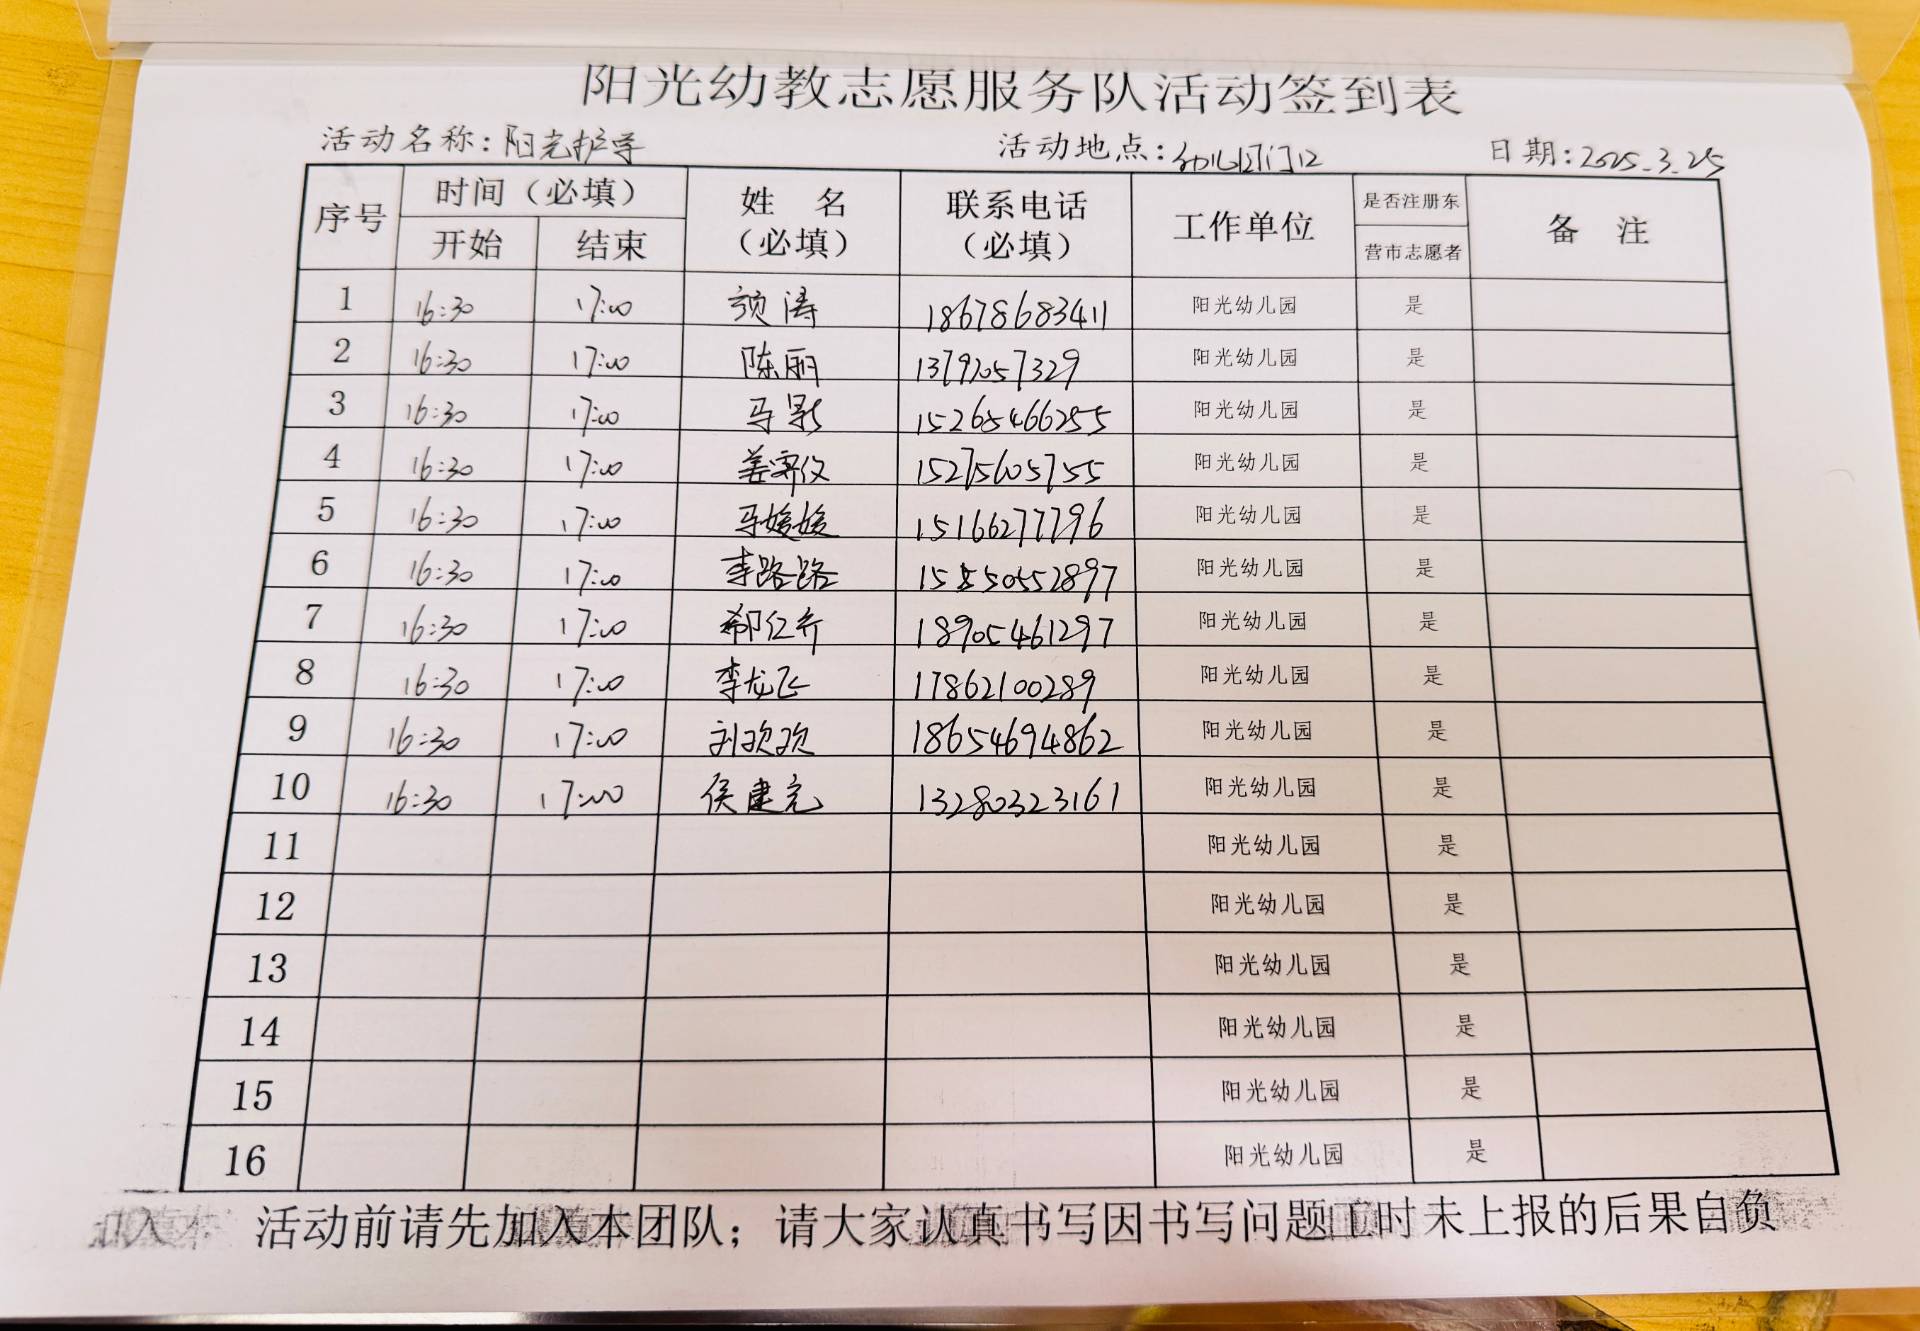 阳光幼教志愿服务队活动签到表
活动名称:阳光护学 活动地点:幼儿园门口 日期:2025.3.25
序号 时间（必填） 姓 名（必填） 联系电话（必填） 工作单位 是否注册东营市志愿者 备 注
开始 结束
1 16:30 17:00 颜涛 18678683411 阳光幼儿园 是
2 16:30 17:00 陈丽 13792057329 阳光幼儿园 是
3 16:30 17:00 马影 15265466255 阳光幼儿园 是
4 16:30 17:00 姜霁仪 15275605755 阳光幼儿园 是
5 16:30 17:00 马媛媛 15166277796 阳光幼儿园 是
6 16:30 17:00 李路路 15550552897 阳光幼儿园 是
7 16:30 17:00 郗仁乔 18905461297 阳光幼儿园 是
8 16:30 17:00 李龙飞 17862100289 阳光幼儿园 是
9 16:30 17:00 刘欢欢 18654694862 阳光幼儿园 是
10 16:30 17:00 侯建充 13280323161 阳光幼儿园 是
11 阳光幼儿园 是
12 阳光幼儿园 是
13 阳光幼儿园 是
14 阳光幼儿园 是
15 阳光幼儿园 是
16 阳光幼儿园 是
活动前请先加入本团队；请大家认真书写因书写问题工时未上报的后果自负